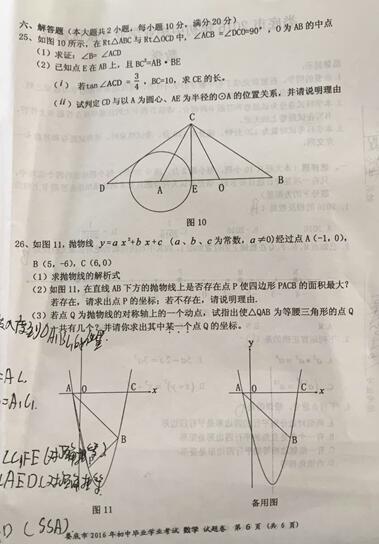 六、解答题（本大题共2小题，每小题10分，满分20分）
25、如图10所示，在Rt△ABC与Rt△OCD中，∠ACB=∠DCO=90°，O为AB的中点
（1）求证：∠B=∠ACD
（2）已知点E在AB上，且BC²=AB·BE
（i）若tan∠ACD=3/4，BC=10，求CE的长，
（ii）试判定CD与以A为圆心、AE为半径的⊙A的位置关系，并请说明理由
C
D A E O B
图10
26、如图11，抛物线 y=ax²+bx+c（a、b、c为常数，a≠0）经过点A(-1,0)，
B(5,-6)，C(6,0)
（1）求抛物线的解析式
（2）如图11，在直线AB下方的抛物线上是否存在点P使四边形PACB的面积最大？
若存在，请求出点P的坐标；若不存在，请说明理由.
（3）若点Q为抛物线的对称轴上的一个动点，试指出使△QAB为等腰三角形的点Q
一共有几个？并请你求出其中某一个点Q的坐标.
y
A O C x
B
图11
y
A O C x
B
备用图
(SSA)
娄底市2016年初中毕业学业考试 数学 试题卷 第6页（共6页）